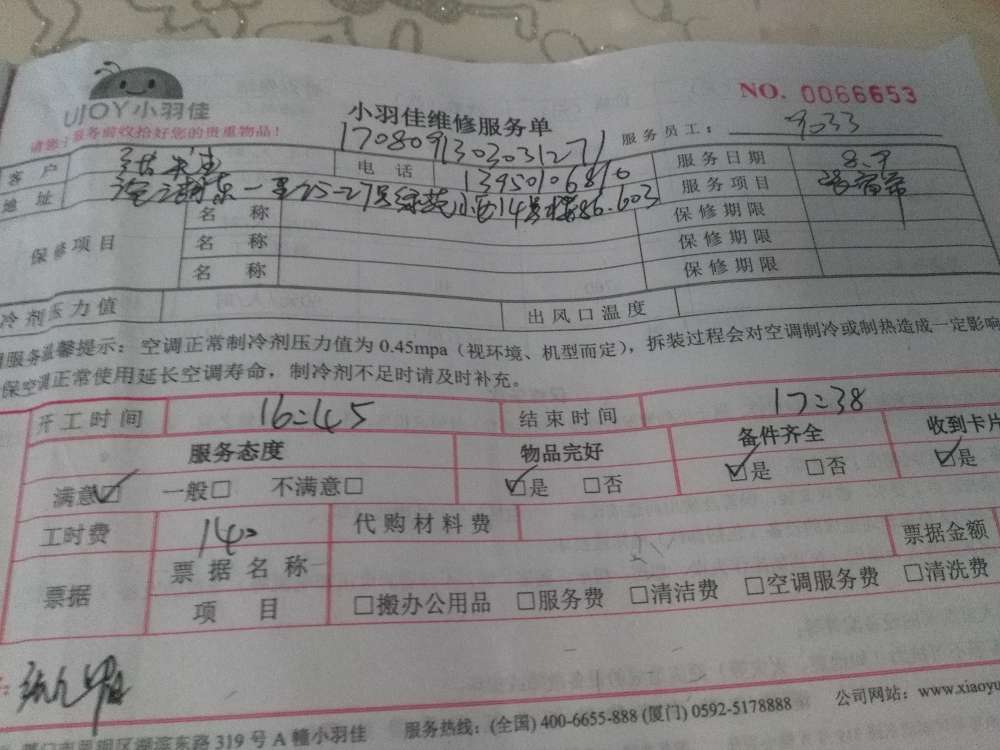 UJOY小羽佳
NO. 0066653
小羽佳维修服务单
服务前收拾好您的贵重物品！
服务员工： 9033
17080913030312 71
客 户 电 话 13950106816 服务日期 8.9
地 址 一里25-27号 14号楼 603 服务项目
保修项目 名 称 保修期限
名 称 保修期限
名 称 保修期限
冷剂压力值 出风口温度
服务温馨提示：空调正常制冷剂压力值为 0.45mpa（视环境、机型而定），拆装过程会对空调制冷或制热造成一定影响
保空调正常使用延长空调寿命，制冷剂不足时请及时补充。
开工时间 16:45 结束时间 17:38
服务态度 物品完好 备件齐全 收到卡片
满意☑ 一般□ 不满意□ ☑是 □否 ☑是 □否 ☑是
工时费 140 代购材料费
票据 票据名称 票据金额
项 目 □搬办公用品 □服务费 □清洁费 □空调服务费 □清洗费
湖滨东路 319 号 A 幢小羽佳 服务热线：(全国) 400-6655-888 (厦门) 0592-5178888 公司网站：www.xiaoyu